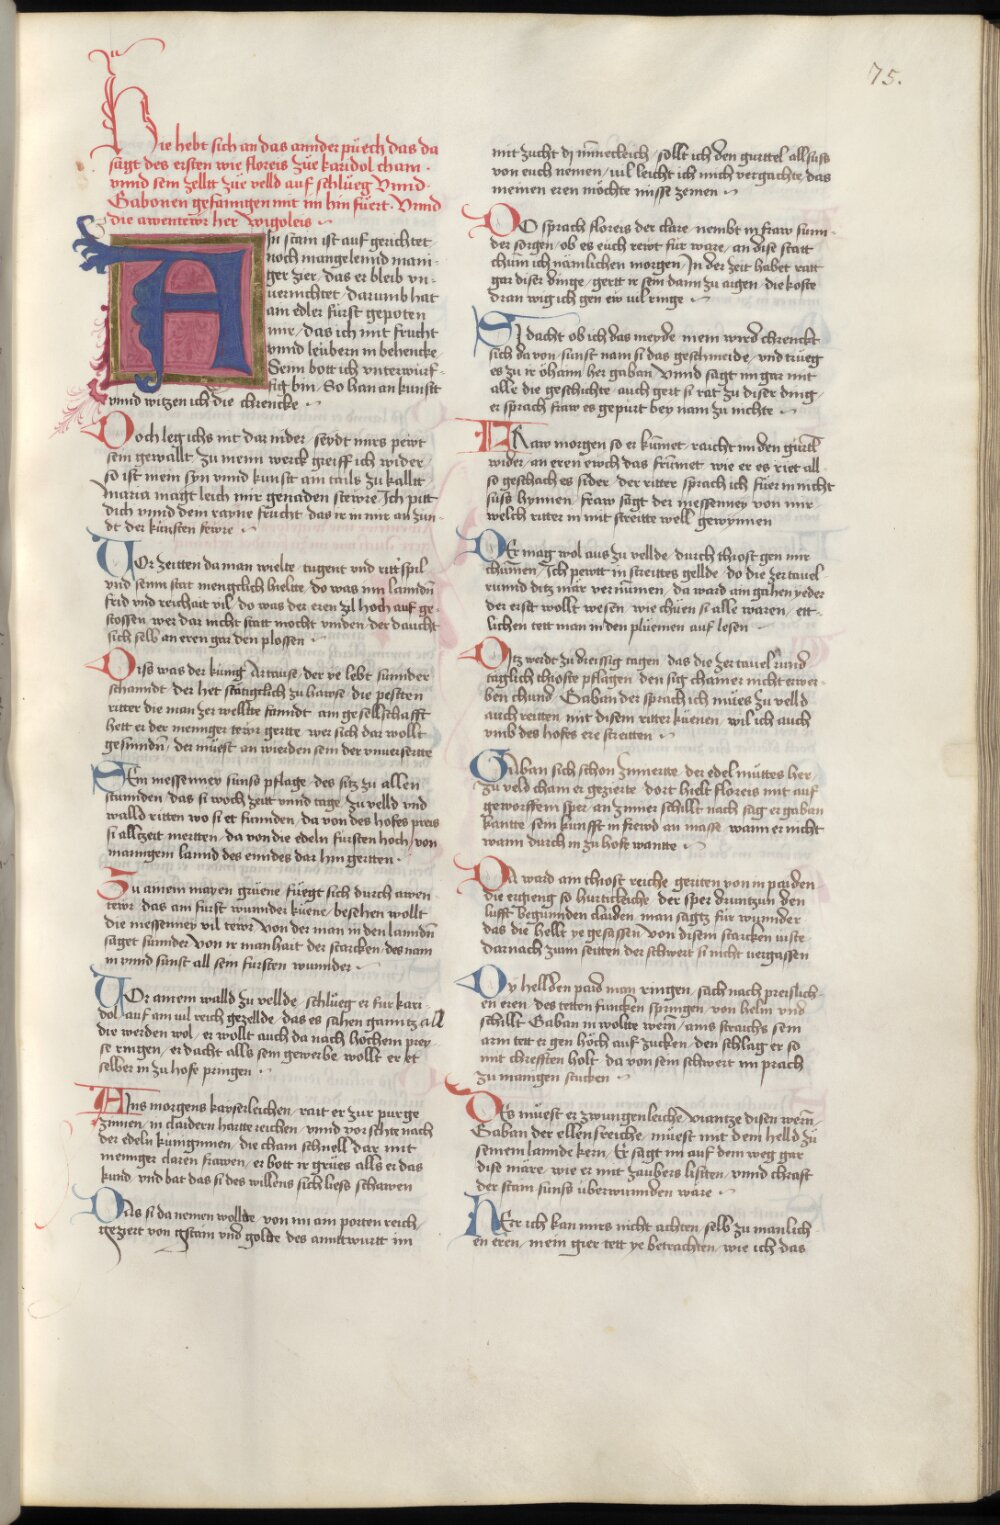 75.
Hie hebt sich an das annder püech das da
sagt des ersten wie floreis zue karidol cham ·
vnnd sein zellt zue velld auf schlueg Vnnd
Gabonen gefanngen mit im hin füert · Vnnd
die awentewr her wigoleis ·
Ain stam ist auf gerichtet
noch mangelennd mani-
ger zier / das er bleib vn-
uernichtet / darumb hat
am edler fürst gepoten
mir / das ich mit frucht
vnnd leübern in behencke
Seim bott ich vnterwürf-
fig bin / So han an kunstt
vnnd witzen ich die chrencke ·
Doch leg ichs nit dar nider / seydt mirs pewt
sein gewallt / zu meim werck greiff ich wider /
so ist mein syn vnnd kunstt am tails zu kalltt
Maria magt leich mir genaden stewre Ich pitt
dich vnnd dem rayne frucht / das ir in mir an zün-
dt der künsten fewre ·
Vor zeitten da man wielte / tugent vnd rittspil
vnd seinn stat mengklich hielte / do was inn lanndn
frid vnd reichait vil / do was der eren zil hoch auf ge-
stossen / wer dar nicht statt mocht vinden / der daucht
sich selb an eren gar den plossen ·
Diss was der künig Artause / der ye lebt sunnder
schanndt / der het stätigclich zu hawse / die pesten
ritter die man zer wellte fanndt / am gesellschafft
hett er der menniger tewr gertte / wer sich dar wollt
gesinndn / der müest an wierden sein der vnuersertte
Sein messenney sunst pflage / des sitz zu allen
stunnden / das si woch zeitt vnnd tage / zu velld vnd
walld ritten wo si et funnden / da von des hofes preis
si allzeit mertten / da von die edeln fürsten hoch / von
mannigem lannd des enndes dar hin gertten ·
Zu ainem mayen grüene / füegt sich durch awen-
tewr / das am fürst wunnder küene / besehen wollt
die messenney vil tewr / von der man in den lanndn
saget sunnder / von ir manhait der starcken / des nam
in vnnd sunst all sein fürsten wunnder ·
Vor ainem walld zu vellde / schlueg er für kari-
dol / auf am vil reich gezellde / das es sahen ganntz all
die werden wol / er wollt auch da nach hochem prey-
se ringen / er dacht alls sein gewerbe / wollt er et
selber in zu hofe pringen ·
Ains morgens kayserleichen / rait er zur purge
zinnen / in claidern hartte reichen / vnnd vorschte nach
der edeln künginnen / die cham schnell dar mit
menniger claren frawen / er bott ir grües alls er das
kund / vnd bat das si des willens sich liess schawen
Ob si da nemen wollte / von im am porten reich /
geziert von gstain vnd golde / des anntwurtt im
mit zucht dy mineclich / sollt ich den gurttel allsuss
von euch nemen / vil leicht ich mich vergachte / das
meinen eren möchte misse zemen ·
Do sprach floreis der clare / nembt in fraw sunn-
der sorgen / ob es euch rewt fürware / an dise statt
chum ich nämlichen morgen / In der zeit habet ratt
gar diser dinge / gertt ir sein dann zu aigen / die koste
dran wig ich gen ew vil ringe ·
Si dacht ob ich das meyde / mein wird chrenckt
sich da von / sunst nam si das geschmeide / vnd trueg
es zu ir öham her gaban / Vnnd sagt im gar mit
alle die geschichte / auch gert si rat zu diser ding /
er sprach fraw es gepürt bey nam zu nichte ·
Fraw morgen so er kümet / raicht im den gürtl
wider / an eren ewch das frümet / wie er es riet all-
so geschach es sider / der ritter sprach ich füer in nicht
süss hynnen / fraw sagt der messenney von mir
welch ritter in mit streitte well gewynnen
Der mag wol aus zu vellde / durch thiost gen mir
chumen / Ich pewtt in streittes gellde / do die zer tauel
runnd ditz mär vernümen / da ward am gahen yeder
der erst wollt wesen / wie chüen si alle waren / ett-
lichen tett man in den plüemen auf lesen ·
Ditz werdt zu dreissig tagen / das die zer tauel rund
täglich thioste pflagen / den sig chainer nicht erwer-
ben chund / Gaban der sprach ich müest zu velld
auch reitten / mit disem ritter küenen / wil ich auch
vmb des hofes ere streitten ·
Gaban sich schon zimierte / der edel müttes her /
zu veld cham er gezierte / dort hielt floreis mit auf
geworffem sper / an zimier schillt nach sag er gaban
kantte / sein kunfft in frewd an masse / wann er nicht
wann durch in zu hofe wantte ·
Da ward am thiost reiche / geriten von in paiden
die ergieng so hurtickleiche / der sper drumtzun den
lufft begunnden claiden / man sagtz für wunnder
das die hellt ye gesassen / von disem starcken iuste
darnach zum seitten der schwert si nicht vergassen
Dy hellden paid man ringen / sach nach preislich-
en eren / des tetten funcken springen / von helm vnd
schillt / Gaban in wollte wern / ains strauchs sein
arm tett er gen höch auf zucken / den schlag er so
mit chrefften holt / da von sein schwert im prach
zu manigen stucken ·
Des müest er zwungenleiche / viantze disen wern /
Gaban der ellensreiche / müest mit dem helld zu
seinem lannde kern / Er sagt im auf dem weg gar
dise märe / wie er mit zaubers lissten / vnnd chrafft
der stain sunst überwunnden wäre ·
Her ich kan mirs nicht achten / selb zu manlich-
en eren / mein gier tett ye betrachten / wie ich das